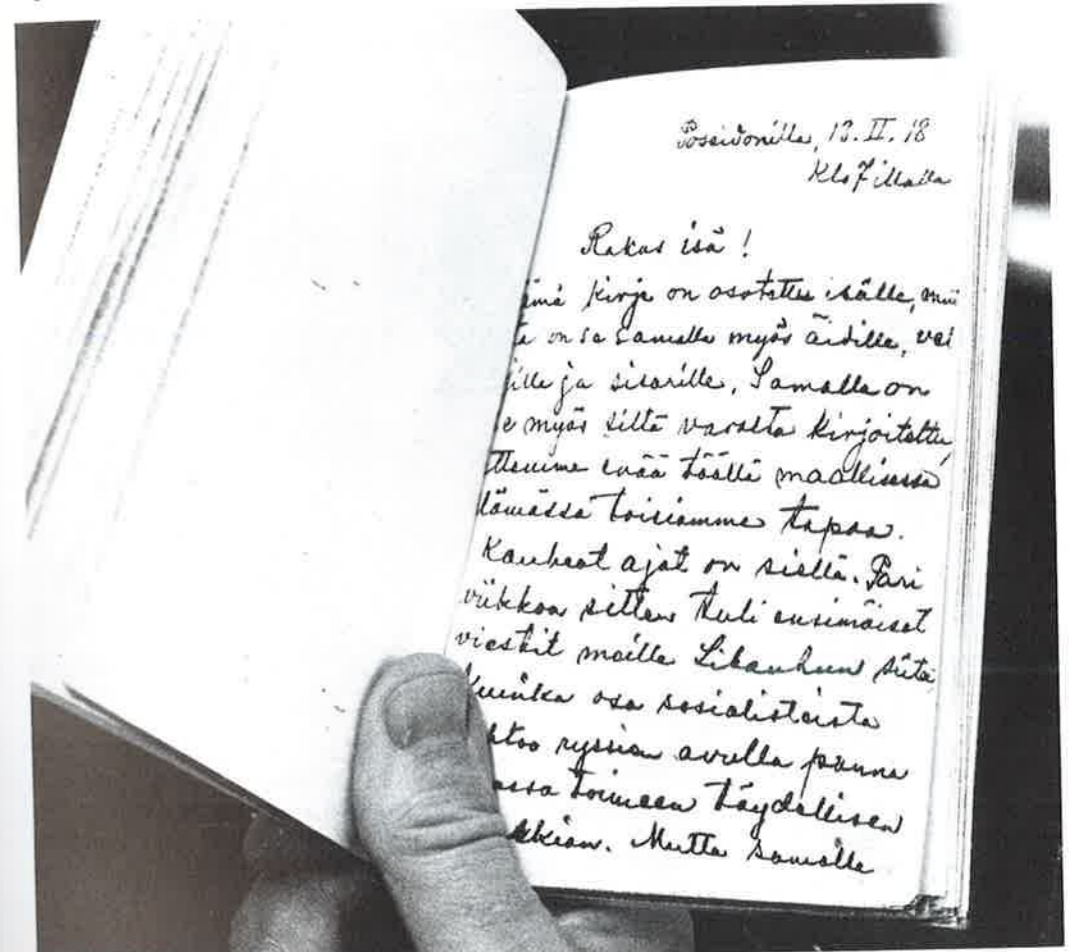 Poseidonilla, 13. II. 18
Klo 7 illalla
Rakas isä!
ämä kirje on osotettu isälle, mut
ta on se samalla myös äidille, vel
jille ja sisarille. Samalla on
se myös siltä varalta kirjoitettu,
ttemme enää täällä maallisessa
lämässä toisiamme tapaa.
Kauheat ajat on siellä. Pari
viikkoa sitten tuli ensimäiset
viestit meille Libauhun siitä
kuinka osa sosialisteista
htoo ryssien avulla panna
assa toimeen täydellisen
kkian. Mutta samalla